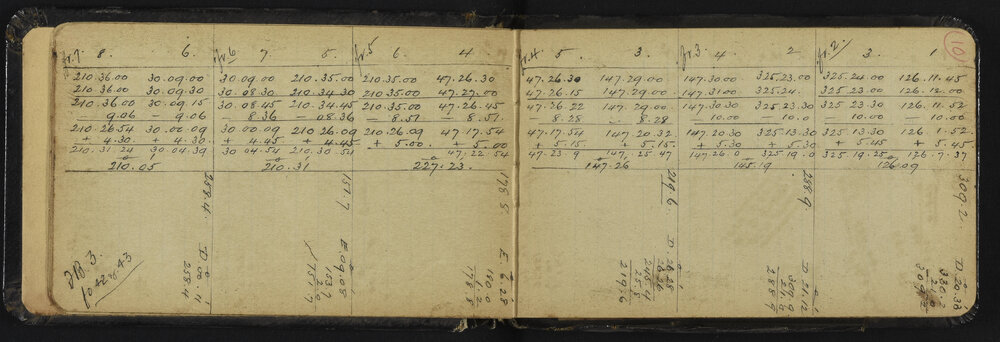 fr. 7. 8. 6. fr. 6 7 5. fr. 5 6. 4.
210.36.00 30.09.00 30.09.00 210.35.00 210.35.00 47.26.30
210.36.00 30.09.30 30.08.30 210.34.30 210.35.00 47.27.00
210.36.00 30.09.15 30.08.45 210.34.45 210.35.00 47.26.45
— 9.06 — 9.06 — 8.36 — 08.36 — 8.51 — 8.51
210.26.54 30.00.09 30.00.09 210.26.09 210.26.09 47.17.54
+ 4.30 + 4.30 + 4.45 + 4.45 + 5.00 + 5.00
210.31.24 30.04.39 30.04.54 210.30.54 47.22.54
210.05 210.31 227.23.
258.4.
D. 00.11
258.4
151.7
E. 09.08
153.7
2.0
151.7
176 8.
E 6.28
180.0
176.8
JB. 3.
fo 42 & 43
10
fr. 4. 5 3. fr. 3. 4 2 fr. 2/ 3. 1
47.26.30 147.29.00 147.30.00 325.23.00 325.24.00 126.11.45
47.26.15 147.29.00 147.31.00 325.24. 325.23.00 126.12.00
47.26.22 147.29.00 147.30.30 325.23.30 325.23.30 126.11.52
— 8.28 — 8.28 — 10.00 — 10.0 — 10.00 — 10.00
47.17.54 147.20.32 147.20.30 325.13.30 325.13.30 126 1.52
+ 5.15 + 5.15 + 5.30 + 5.30 + 5.45 + 5.45
47.23.9 147.25.47 147.26.0 325.19.0 325.19.25 126.7.37
147.26 145.19 126.09
219.6.
D 28.28
28.26
248.4
219.6
288.9.
D 21.12
309.9
288.9
309.2.
D. 20.38
330.2
309.2